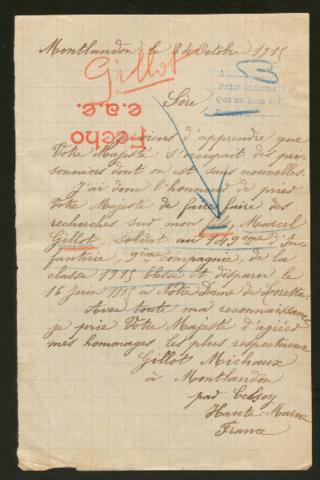 Montlandon le 24 Octobre 1915
Gillot
Sire,
Fecho
e.a.e.
Je viens d'apprendre que
Votre Majesté s'occupait des pri-
sonniers dont on est sans nouvelles.
J'ai donc l'honneur de prier
Votre Majesté de faire faire des
recherches sur mon fils, Marcel
Gillot, soldat au 149ème d'In-
fanterie, 9ème compagnie, de la
classe 1915 blessé et disparu le
16 juin 1915 à Notre Dame de Lorette.
Avec toute ma reconnaissance
je prie Votre Majesté d'agréer
mes hommages les plus respectueux
Gillot Michaux
à Montlandon
par Celsoy
Haute-Marne
France